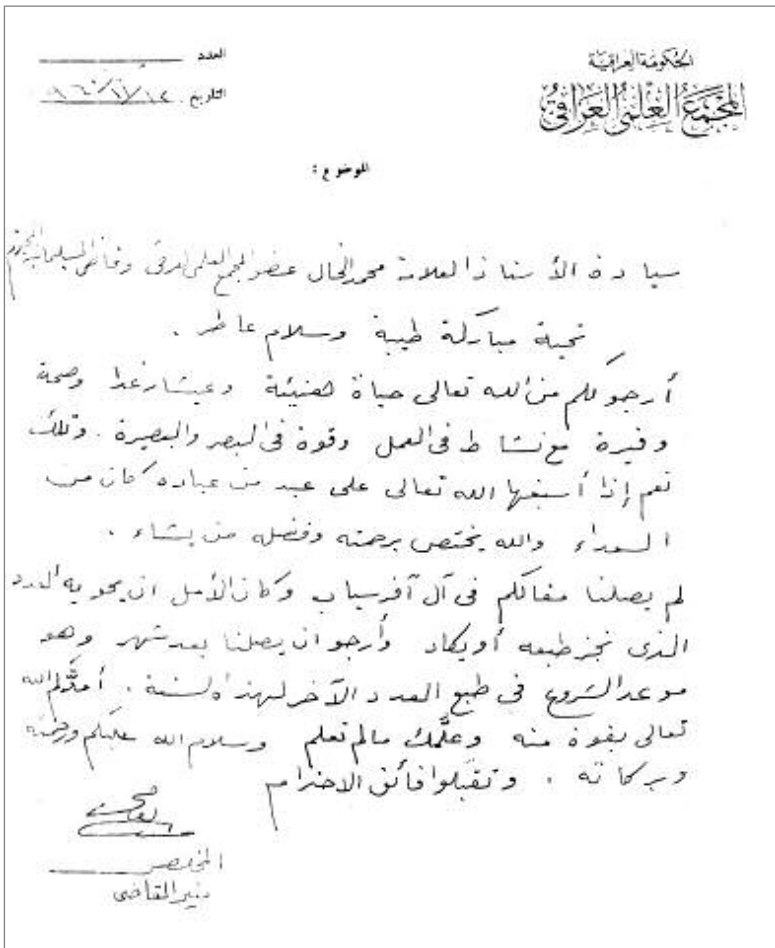 الحكومة العراقية
المجمع العلمي العراقي
العدد
التاريخ
الموضوع :
سيادة الأستاذ العلامة محمد الخال عضو المجمع العلمي العراقي وقاضي السليمانية
تحية مباركة طيبة وسلام عاطر .
أرجو لكم من الله تعالى حياة هنيئة وعيشا رغدا وصحة
وفيرة مع نشاط في العمل وقوة في البصر والبصيرة . وتلك
نعم إذا أسبغها الله تعالى على عبد من عباده كان من
السعداء والله يختص برحمته وفضله من يشاء .
لم يصلنا مقالكم في آل آفرسياب وكان الأمل ان يحويه العدد
الذي نجز طبعه أو يكاد وأرجو ان يصلنا بعد شهر وهو
موعد الشروع في طبع العدد الآخر لهذه السنة . أمدَّكم الله
تعالى بقوة منه وعلَّمك مالم تعلم وسلام الله عليكم ورحمته
وبركاته . وتقبلوا فائق الاحترام
المخلص
منير القاضي